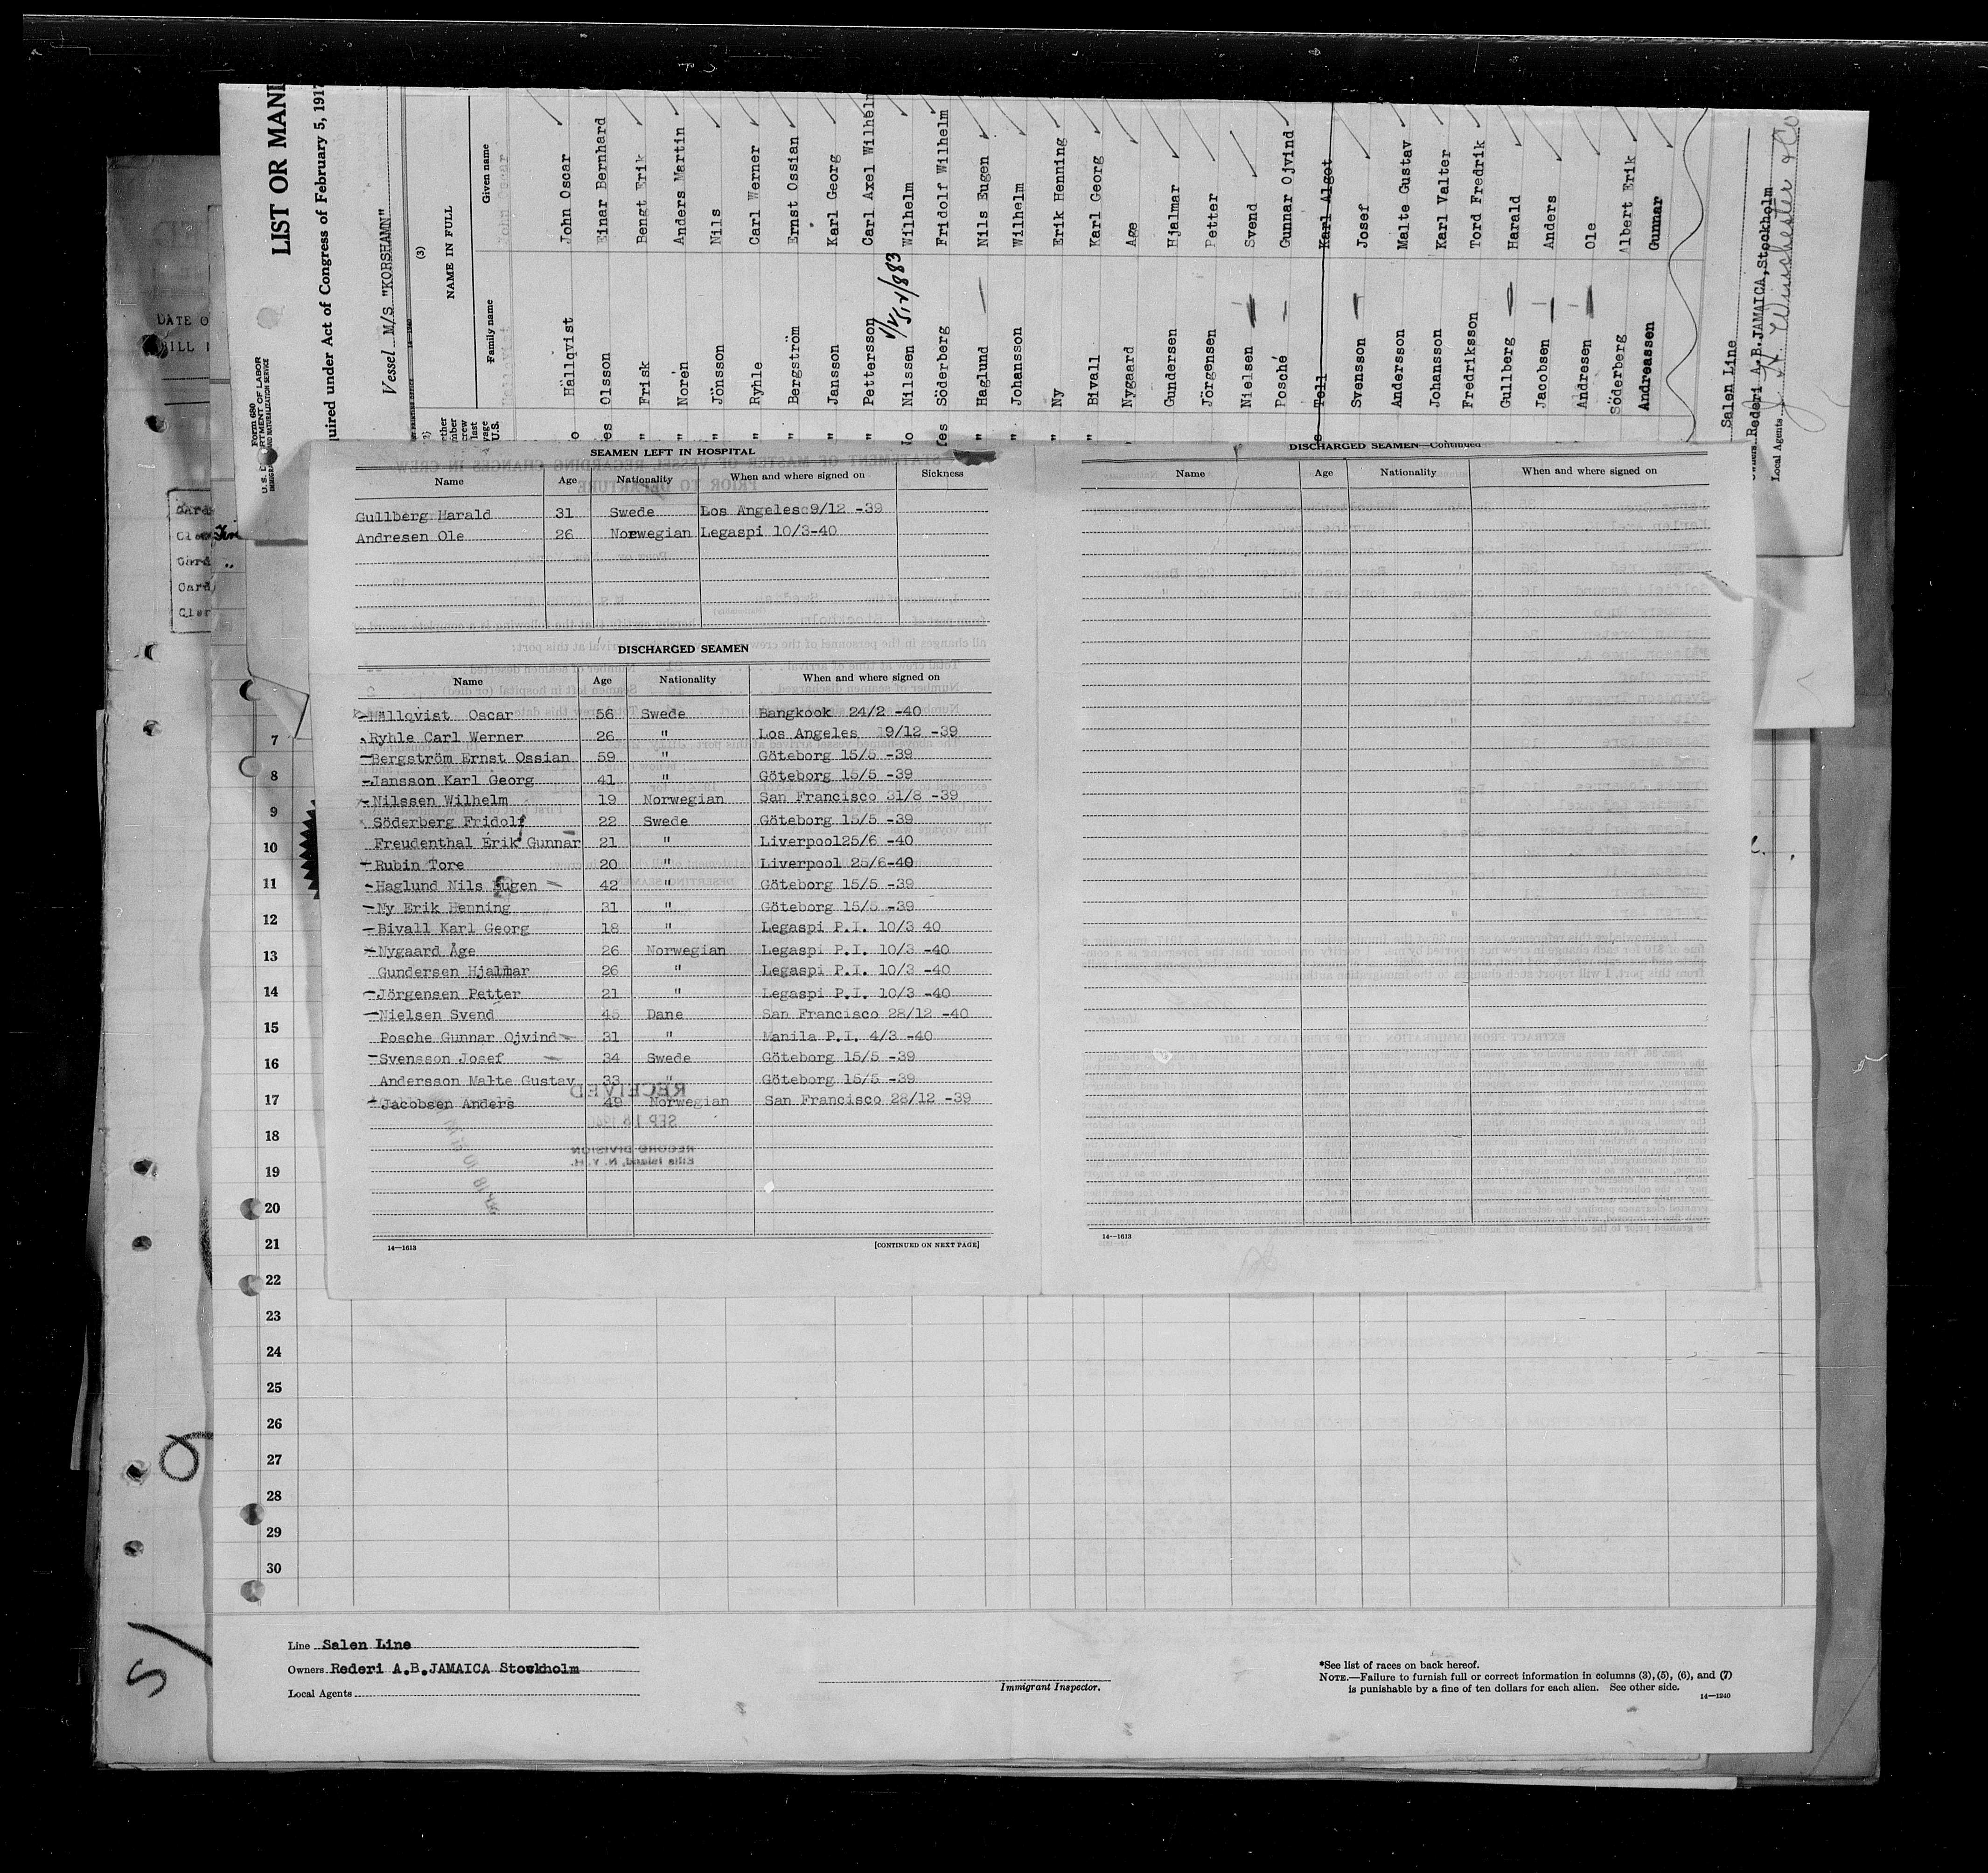 LIST OR MANI
quired under Act of Congress of February 5, 1917
Vessel M/S "KORSHAMN"
Form 680
U. S. DEPARTMENT OF LABOR
IMMIGRATION AND NATURALIZATION SERVICE
(3)
NAME IN FULL
Family name Given name
Hällqvist John Oscar
Olsson Einar Bernhard
Frisk Bengt Erik
Norén Anders Martin
Jönsson Nils
Ryhle Carl Werner
Bergström Ernst Ossian
Jansson Karl Georg
Pettersson Carl Axel Wilhelm
Nilssen Wilhelm
Söderberg Fridolf Wilhelm
Haglund Nils Eugen
Johansson Wilhelm
Ny Erik Henning
Bivall Karl Georg
Nygaard Age
Gundersen Hjalmar
Jörgensen Petter
Nielsen Svend
Posché Gunnar Ojvind
Tell Karl Algot
Svensson Josef
Andersson Malte Gustav
Johansson Karl Valter
Fredriksson Tord Fredrik
Gullberg Harald
Jacobsen Anders
Andresen Ole
Söderberg Albert Erik
Andreassen Gunnar
Salen Line
Rederi A.B.JAMAICA,Stockholm
Local Agents J. H. Winchester & Co
SEAMEN LEFT IN HOSPITAL
Name Age Nationality When and where signed on Sickness
Gullberg Harald 31 Swede Los Angeles 9/12 -39
Andresen Ole 26 Norwegian Legaspi 10/3-40
DISCHARGED SEAMEN
Name Age Nationality When and where signed on
Hällqvist Oscar 56 Swede Bangkook 24/2 -40
Ryhle Carl Werner 26 " Los Angeles 19/12 -39
Bergström Ernst Ossian 59 " Göteborg 15/5 -39
Jansson Karl Georg 41 " Göteborg 15/5 -39
Nilssen Wilhelm 19 Norwegian San Francisco 31/8 -39
Söderberg Fridolf 22 Swede Göteborg 15/5 -39
Freudenthal Erik Gunnar 21 " Liverpool25/6 -40
Rubin Tore 20 " Liverpool 25/6-40
Haglund Nils Eugen 42 " Göteborg 15/5 -39
Ny Erik Henning 31 " Göteborg 15/5 -39
Bivall Karl Georg 18 " Legaspi P.I. 10/3 40
Nygaard Åge 26 Norwegian Legaspi P.I. 10/3 -40
Gundersen Hjalmar 26 " Legaspi P.I. 10/3 -40
Jörgensen Petter 21 " Legaspi P.I. 10/3 -40
Nielsen Svend 45 Dane San Francisco 28/12 -40
Posche Gunnar Ojvind 31 " Manila P.I. 4/3 -40
Svensson Josef 34 Swede Göteborg 15/5 -39
Andersson Malte Gustav 33 " Göteborg 15/5 -39
Jacobsen Anders 49 Norwegian San Francisco 28/12 -39
RECEIVED
RECORD DIVISION
Ellis Island, N. Y. H.
14—1613 [CONTINUED ON NEXT PAGE]
DISCHARGED SEAMEN—Continued
Name Age Nationality When and where signed on
14—1613
7
8
9
10
11
12
13
14
15
16
17
18
19
20
21
22
23
24
25
26
27
28
29
30
Line Salen Line
Owners Rederi A.B.JAMAICA Stockholm
Local Agents
Immigrant Inspector.
*See list of races on back hereof.
NOTE.—Failure to furnish full or correct information in columns (3), (5), (6), and (7)
is punishable by a fine of ten dollars for each alien. See other side.
14—1240